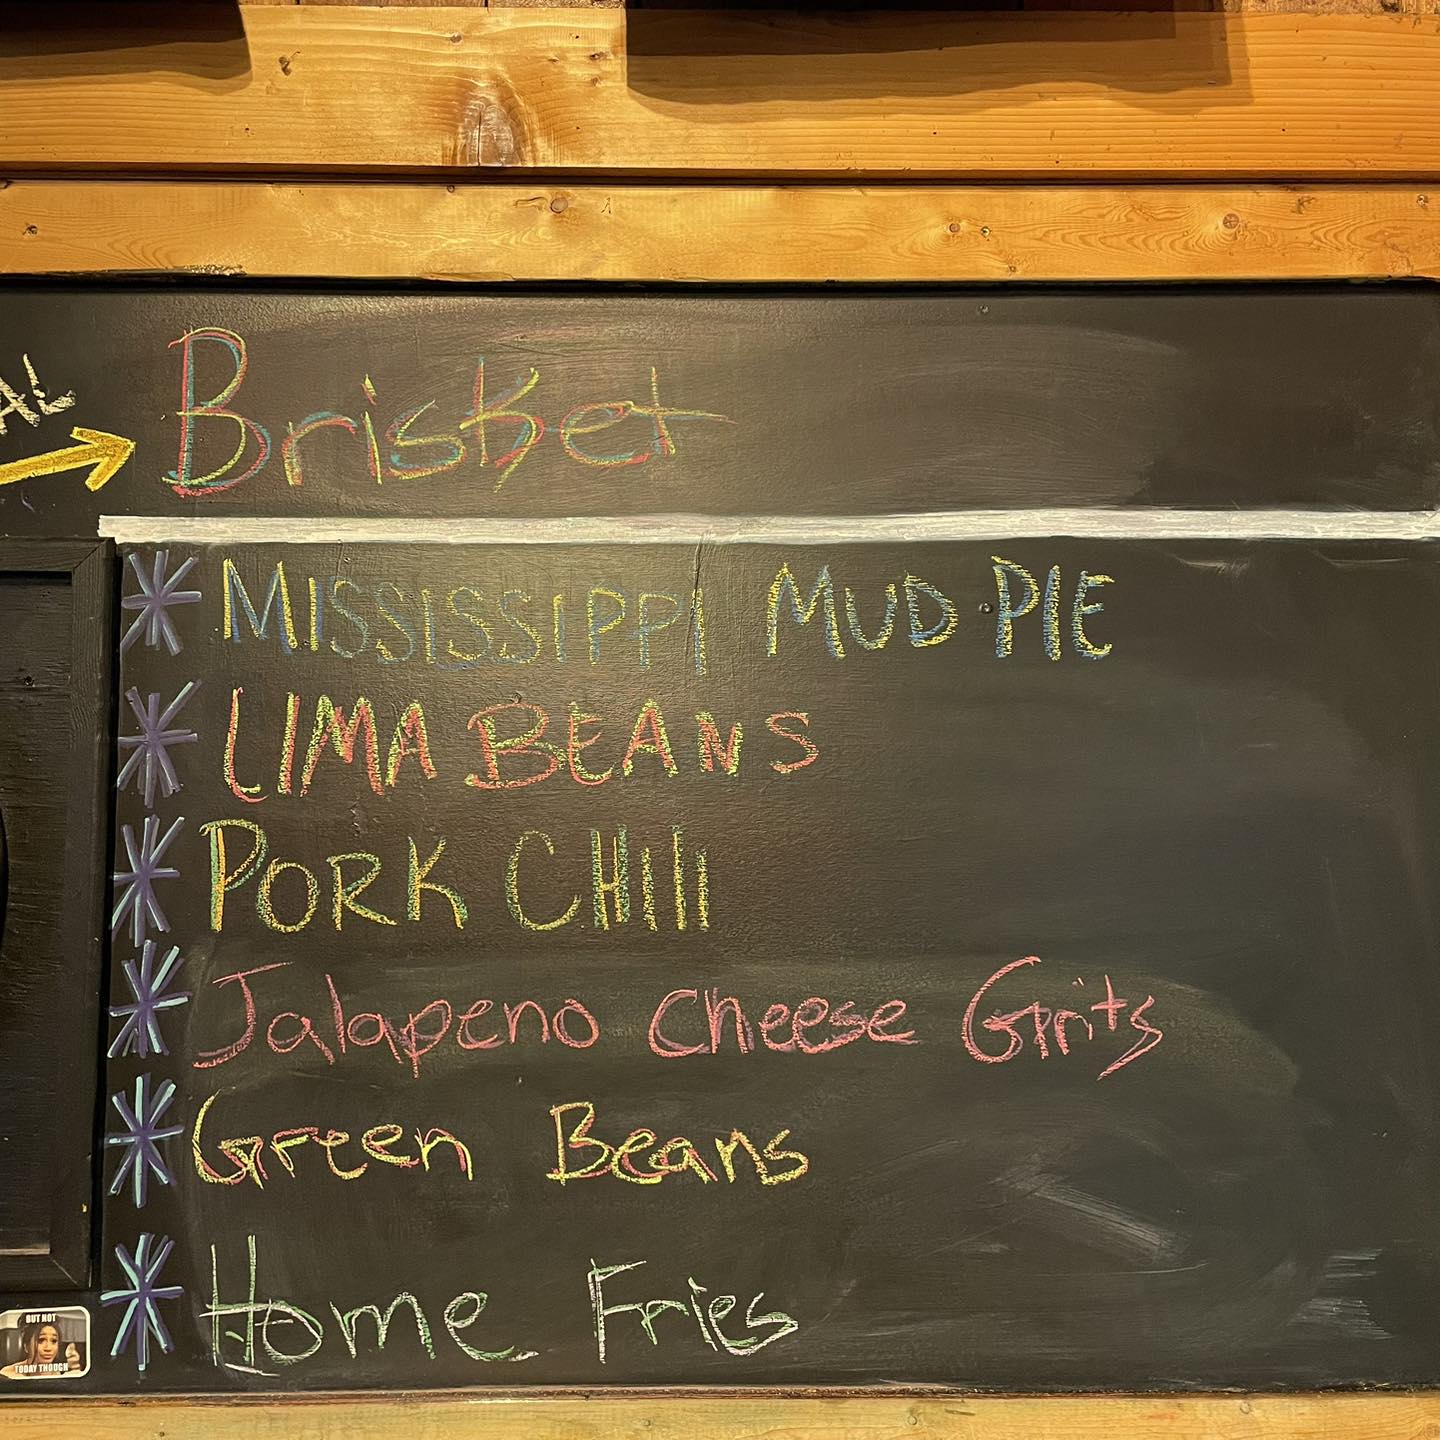 AL
Brisket
MISSISSIPPI MUD PIE
LIMA BEANS
PORK CHILI
Jalapeno Cheese Grits
Green Beans
Home Fries
BUT NOT
TODAY THOUGH